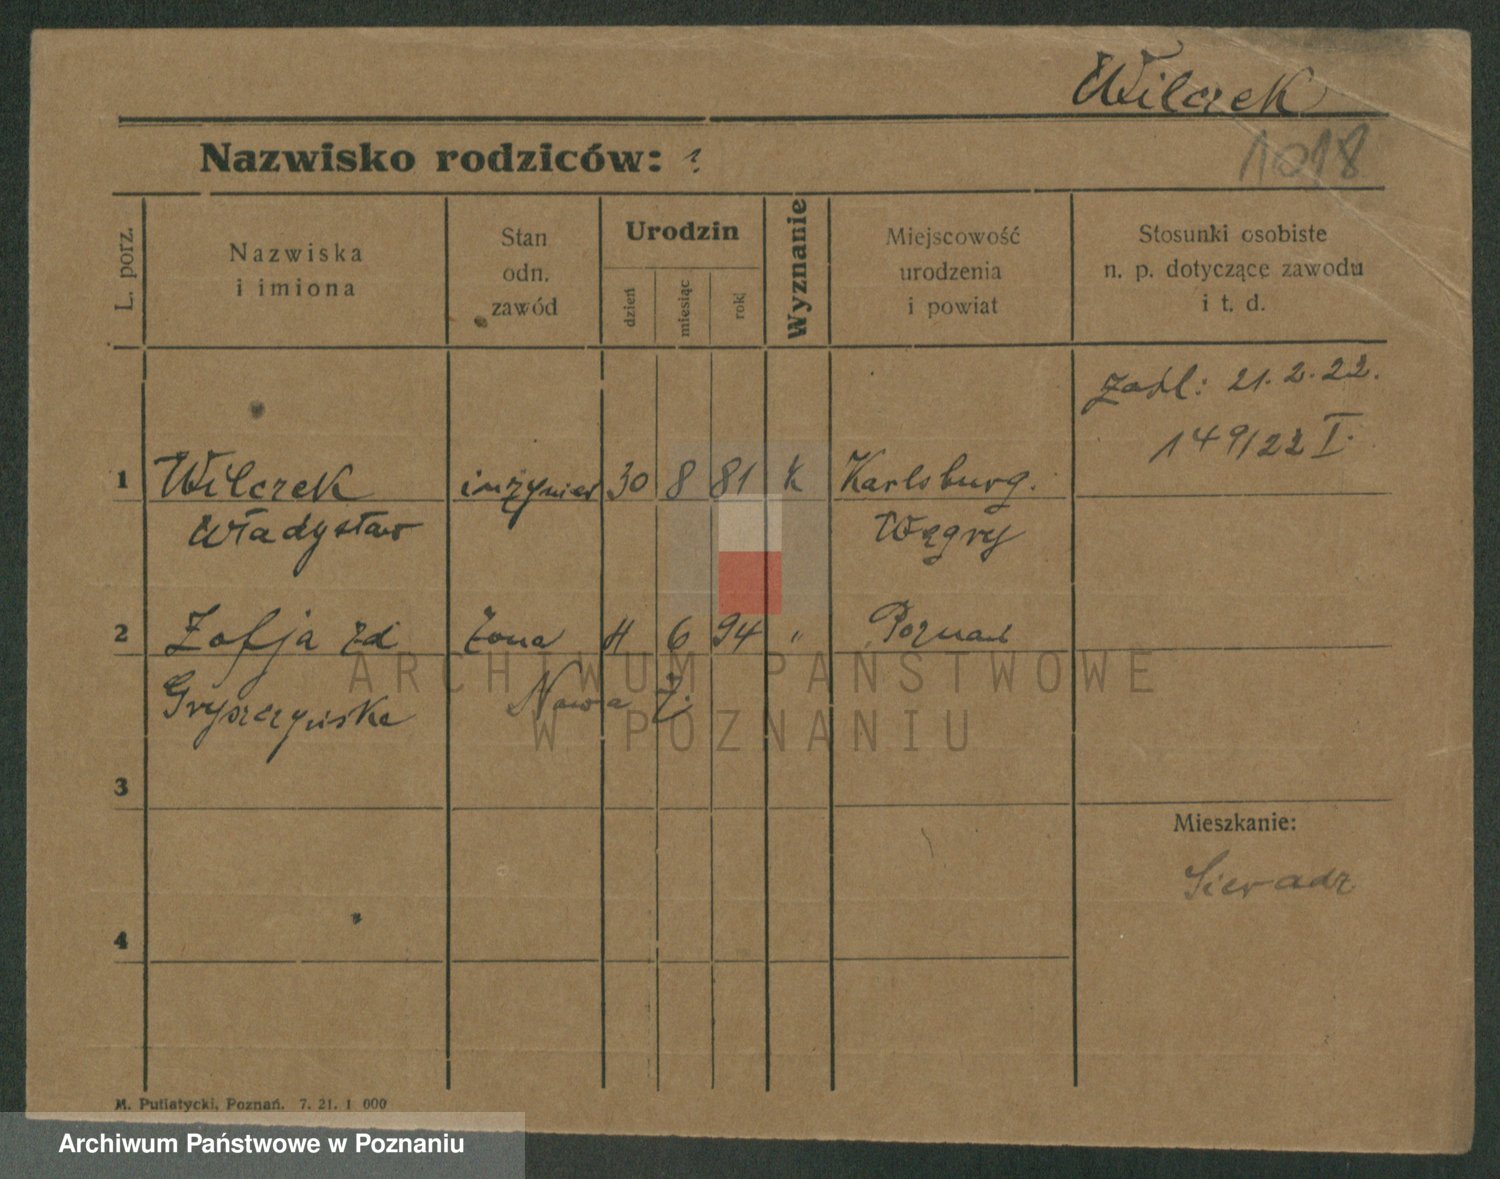 Wilczek
Nazwisko rodziców: ?
1018
L. porz.
Nazwiska
i imiona
Stan
odn.
zawód
Urodzin
dzień
miesiąc
rok
Wyznanie
Miejscowość
urodzenia
i powiat
Stosunki osobiste
n. p. dotyczące zawodu
i t. d.
zaśl: 21.2.22.
149/22 I.
1 Wilczek inżynier 30 8 81 k Karlsburg.
Władysław Węgry
2 Zofja zd żona 11 6 94 " Poznań
Gryszczyńska Nowa
3
Mieszkanie:
Sieradz
4
M. Putiatycki, Poznań. 7. 21. 1 000
ARCHIWUM PAŃSTWOWE
W POZNANIU
Archiwum Państwowe w Poznaniu